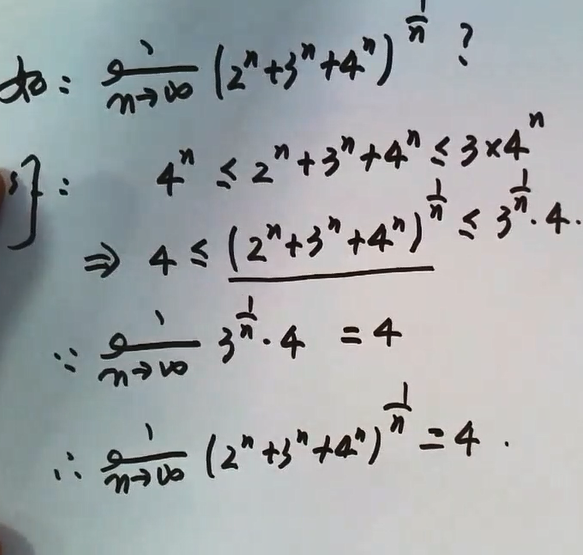 如: lim n→∞ (2ⁿ+3ⁿ+4ⁿ)^(1/n) ?
}: 4ⁿ ≤ 2ⁿ+3ⁿ+4ⁿ ≤ 3×4ⁿ
⇒ 4 ≤ (2ⁿ+3ⁿ+4ⁿ)^(1/n) ≤ 3^(1/n)·4.
∵ lim n→∞ 3^(1/n)·4 = 4
∴ lim n→∞ (2ⁿ+3ⁿ+4ⁿ)^(1/n) = 4.